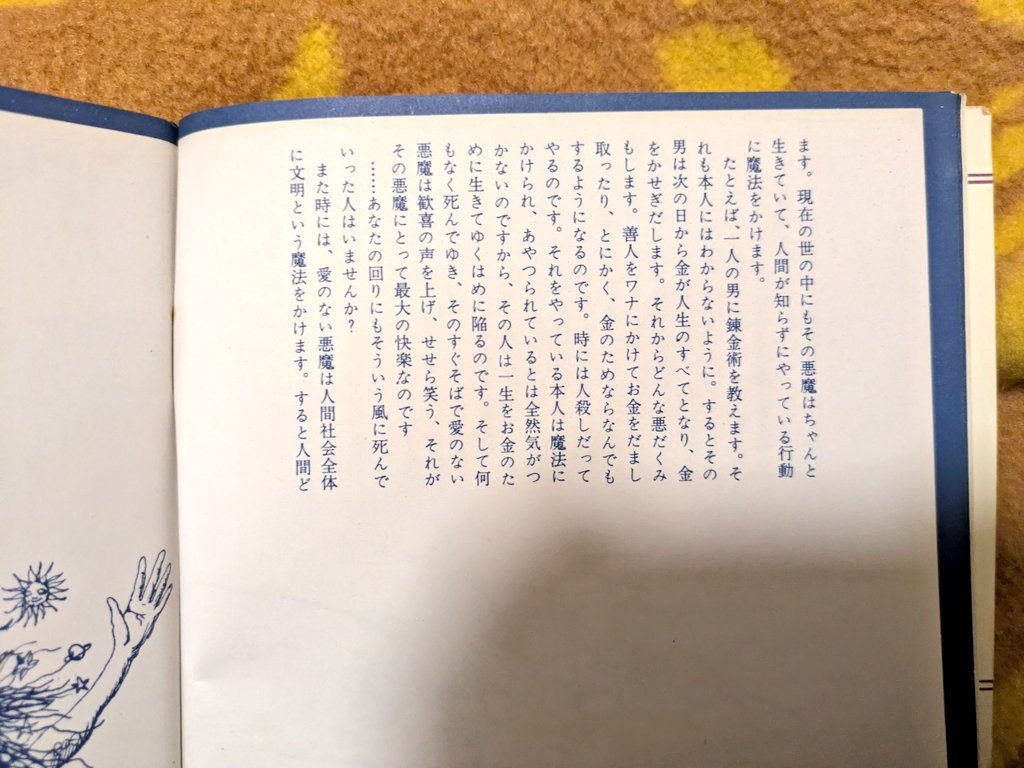 ます。現在の世の中にもその悪魔はちゃんと
生きていて、人間が知らずにやっている行動
に魔法をかけます。
たとえば、一人の男に錬金術を教えます。そ
れも本人にはわからないように。するとその
男は次の日から金が人生のすべてとなり、金
をかせぎだします。それからどんな悪だくみ
もします。善人をワナにかけてお金をだまし
取ったり、とにかく、金のためならなんでも
するようになるのです。時には人殺しだって
やるのです。それをやっている本人は魔法に
かけられ、あやつられているとは全然気がつ
かないのですから、その人は一生をお金のた
めに生きてゆくはめに陥るのです。そして何
もなく死んでゆき、そのすぐそばで愛のない
悪魔は歓喜の声を上げ、せせら笑う、それが
その悪魔にとって最大の快楽なのです
……あなたの回りにもそういう風に死んで
いった人はいませんか？
また時には、愛のない悪魔は人間社会全体
に文明という魔法をかけます。すると人間ど